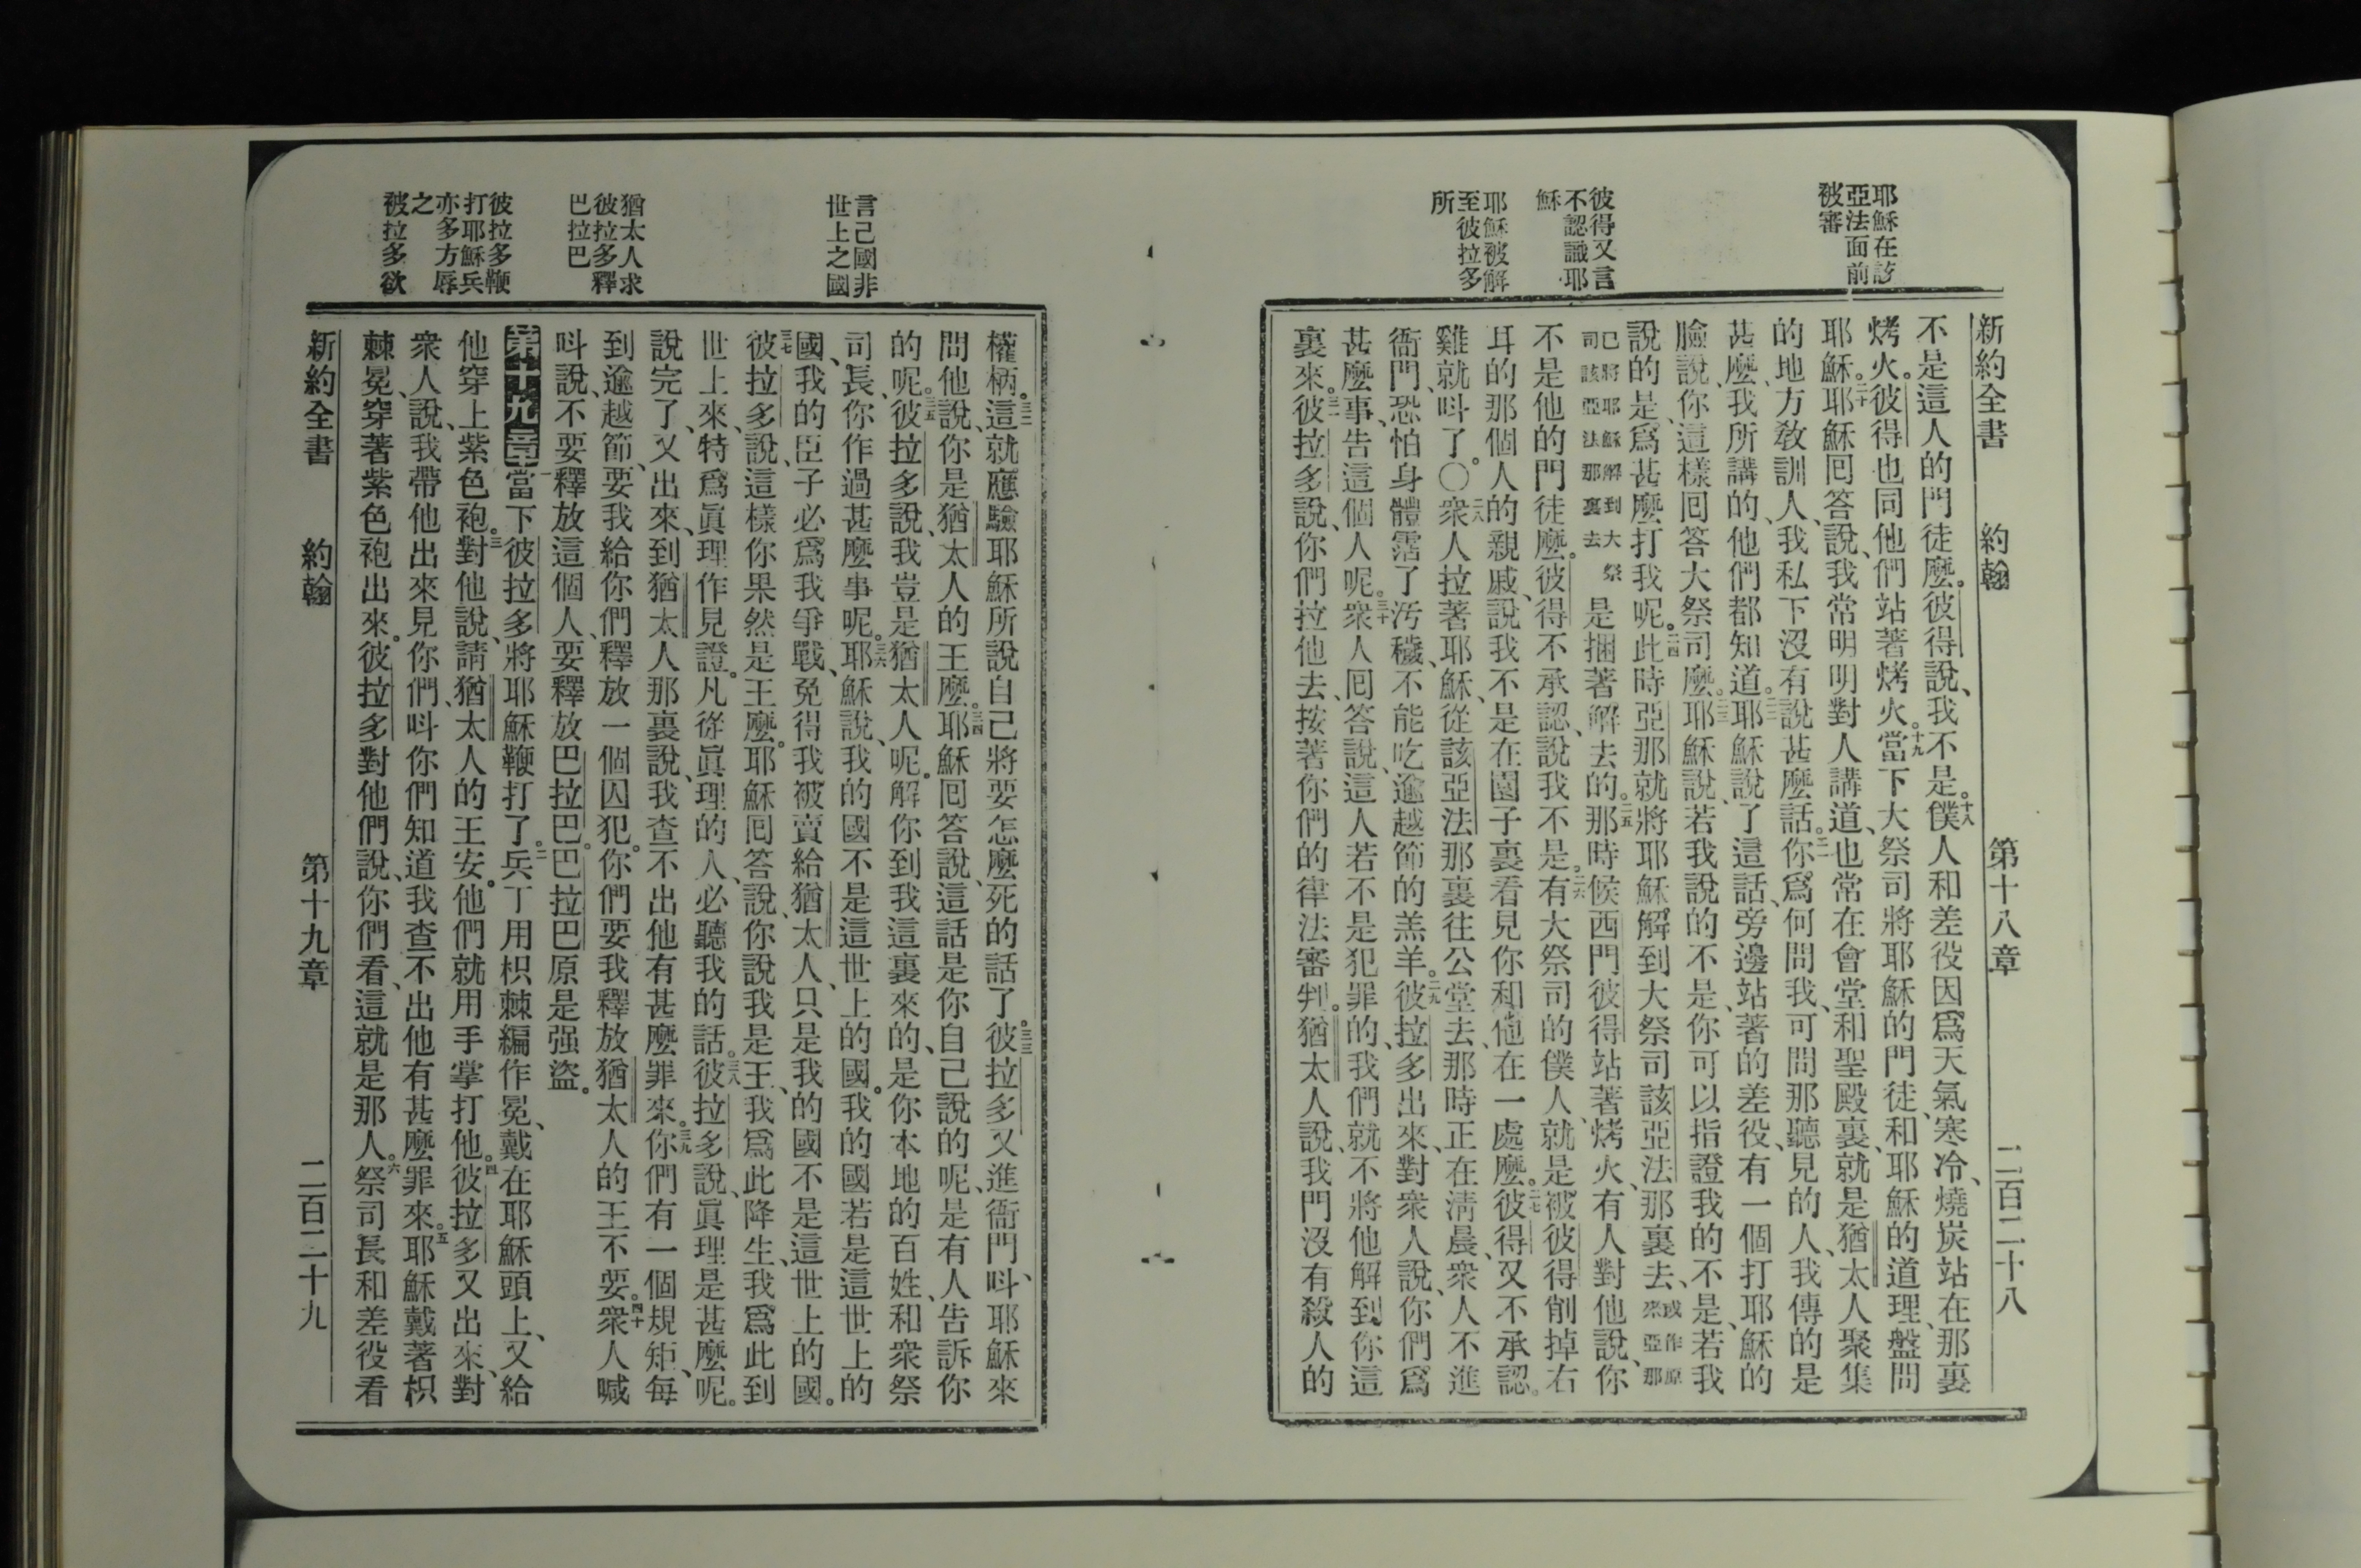 耶穌在該
亞法面前
被審
彼得又言
不認識耶
穌
耶穌被解
至彼拉多
所
新約全書 約翰 第十八章 二百二十八
不是這人的門徒麼。彼得說、我不是。十八僕人和差役因爲天氣寒冷、燒炭站在那裏
烤火。彼得也同他們站著烤火。十九當下大祭司將耶穌的門徒、和耶穌的道理、盤問
耶穌。二十耶穌囘答說、我常明明對人講道、也常在會堂和聖殿裏、就是猶太人聚集
的地方敎訓人、我私下沒有說甚麼話。二一你爲何問我、可問那聽見的人、我傳的是
甚麼、我所講的、他們都知道。二二耶穌說了這話、旁邊站著的差役、有一個打耶穌的
臉說、你這樣囘答大祭司麼。二三耶穌說、若我說的不是、你可以指證我的不是、若我
說的是、爲甚麼打我呢。二四此時亞那就將耶穌、解到大祭司該亞法那裏去、或作原來亞那
已將耶穌解到大祭司該亞法那裏去是捆著解去的。二五那時候西門彼得站著烤火、有人對他說、你
不是他的門徒麼。彼得不承認、說我不是。二六有大祭司的僕人、就是被彼得削掉右
耳的那個人的親戚、說我不是在園子裏看見你和他在一處麼。二七彼得又不承認。
雞就呌了。〇二八衆人拉著耶穌、從該亞法那裏往公堂去、那時正在淸晨、衆人不進
衙門、恐怕身體霑了汚穢、不能吃逾越節的羔羊。二九彼拉多出來、對衆人說、你們爲
甚麼事、告這個人呢。三十衆人囘答說、這人若不是犯罪的、我們就不將他解到你這
裏來。三一彼拉多說、你們拉他去、按著你們的律法審判。猶太人說、我門沒有殺人的
言己國非
世上之國
猶太人求
彼拉多釋
巴拉巴
彼拉多鞭
打耶穌兵
亦多方辱
之
被拉多欲
權柄。三二這就應驗耶穌所說自己將要怎麼死的話了。三三彼拉多又進衙門、呌耶穌來
問他說、你是猶太人的王麼。三四耶穌囘答說、這話是你自己說的呢、是有人告訴你
的呢。三五彼拉多說、我豈是猶太人呢。解你到我這裏來的、是你本地的百姓、和衆祭
司長、你作過甚麼事呢。三六耶穌說、我的國不是這世上的國。我的國若是這世上的
國、我的臣子必爲我爭戰、免得我被賣給猶太人、只是我的國不是這世上的國。
三七彼拉多說、這樣你果然是王麼。耶穌囘答說、你說我是王、我爲此降生、我爲此到
世上來、特爲眞理作見證。凡從眞理的人、必聽我的話。三八彼拉多說、眞理是甚麼呢。
說完了、又出來、到猶太人那裏說、我查不出他有甚麼罪來。三九你們有一個規矩、每
到逾越節、要我給你們釋放一個囚犯。你們要我釋放猶太人的王不要。四十衆人喊
呌說、不要釋放這個人、要釋放巴拉巴。巴拉巴原是强盜。
第十九章當下彼拉多將耶穌鞭打了。二兵丁用枳棘編作冕、戴在耶穌頭上、又給
他穿上紫色袍。三對他說、請猶太人的王安。他們就用手掌打他。四彼拉多又出來、對
衆人說、我帶他出來見你們、呌你們知道我查不出他有甚麼罪來。五耶穌戴著枳
棘冕、穿著紫色袍出來。彼拉多對他們說、你們看、這就是那人。六祭司長和差役看
新約全書 約翰 第十九章 二百二十九